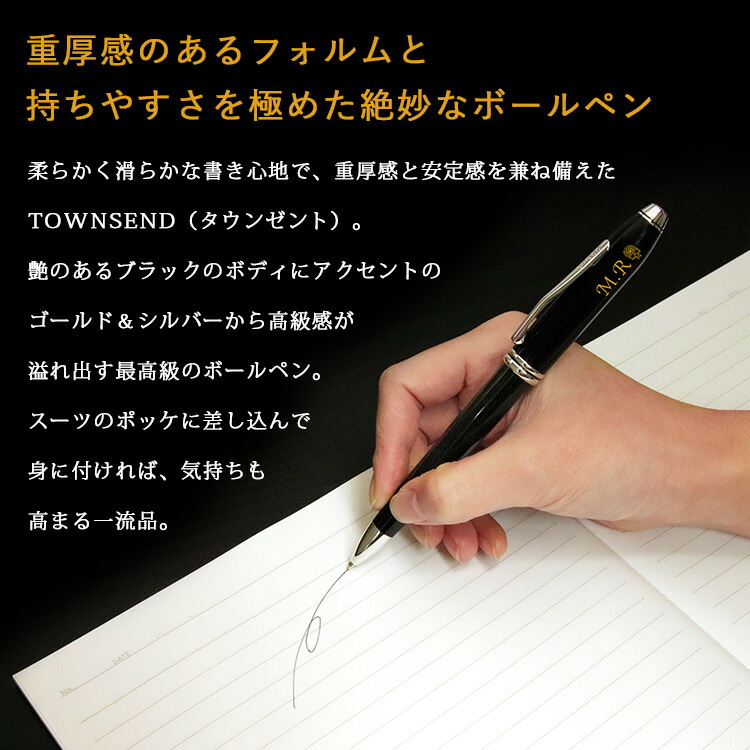 重厚感のあるフォルムと
持ちやすさを極めた絶妙なボールペン
柔らかく滑らかな書き心地で、重厚感と安定感を兼ね備えた
TOWNSEND（タウンゼント）。
艶のあるブラックのボディにアクセントの
ゴールド＆シルバーから高級感が
溢れ出す最高級のボールペン。
スーツのポッケに差し込んで
身に付ければ、気持ちも
高まる一流品。
M.R
DATE
No.